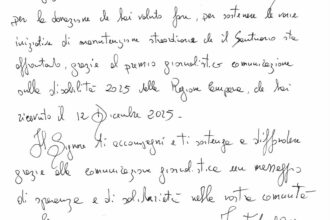 per la donazione che hai voluto fare, per sostenere le varie
iniziative di manutenzione straordinaria che il Santuario sta
affrontando, grazie al premio giornalistico comunicazione
sulla disabilità 2025 della Regione Campania, che hai
ricevuto il 12 Dicembre 2025.
Il Signore ti accompagni e ti sostenga a diffondere
grazie alla comunicazione giornalistica un messaggio
di speranza e di solidarietà nella nostra comunità